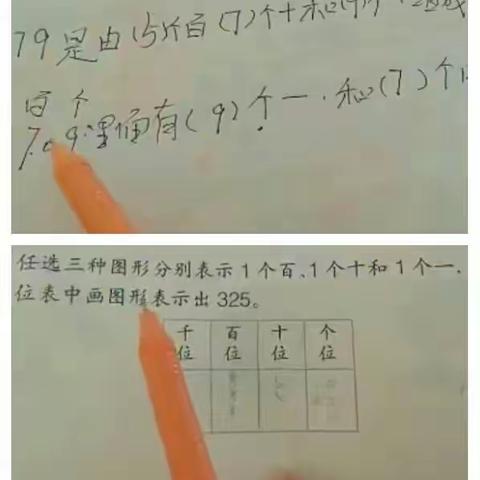 79是由(5)个百(7)个十和(9)个
百 个
709里面有(9)个一.和(7)个
任选三种图形分别表示1个百、1个十和1个一.
位表中画图形表示出325。
千位 百位 十位 个位